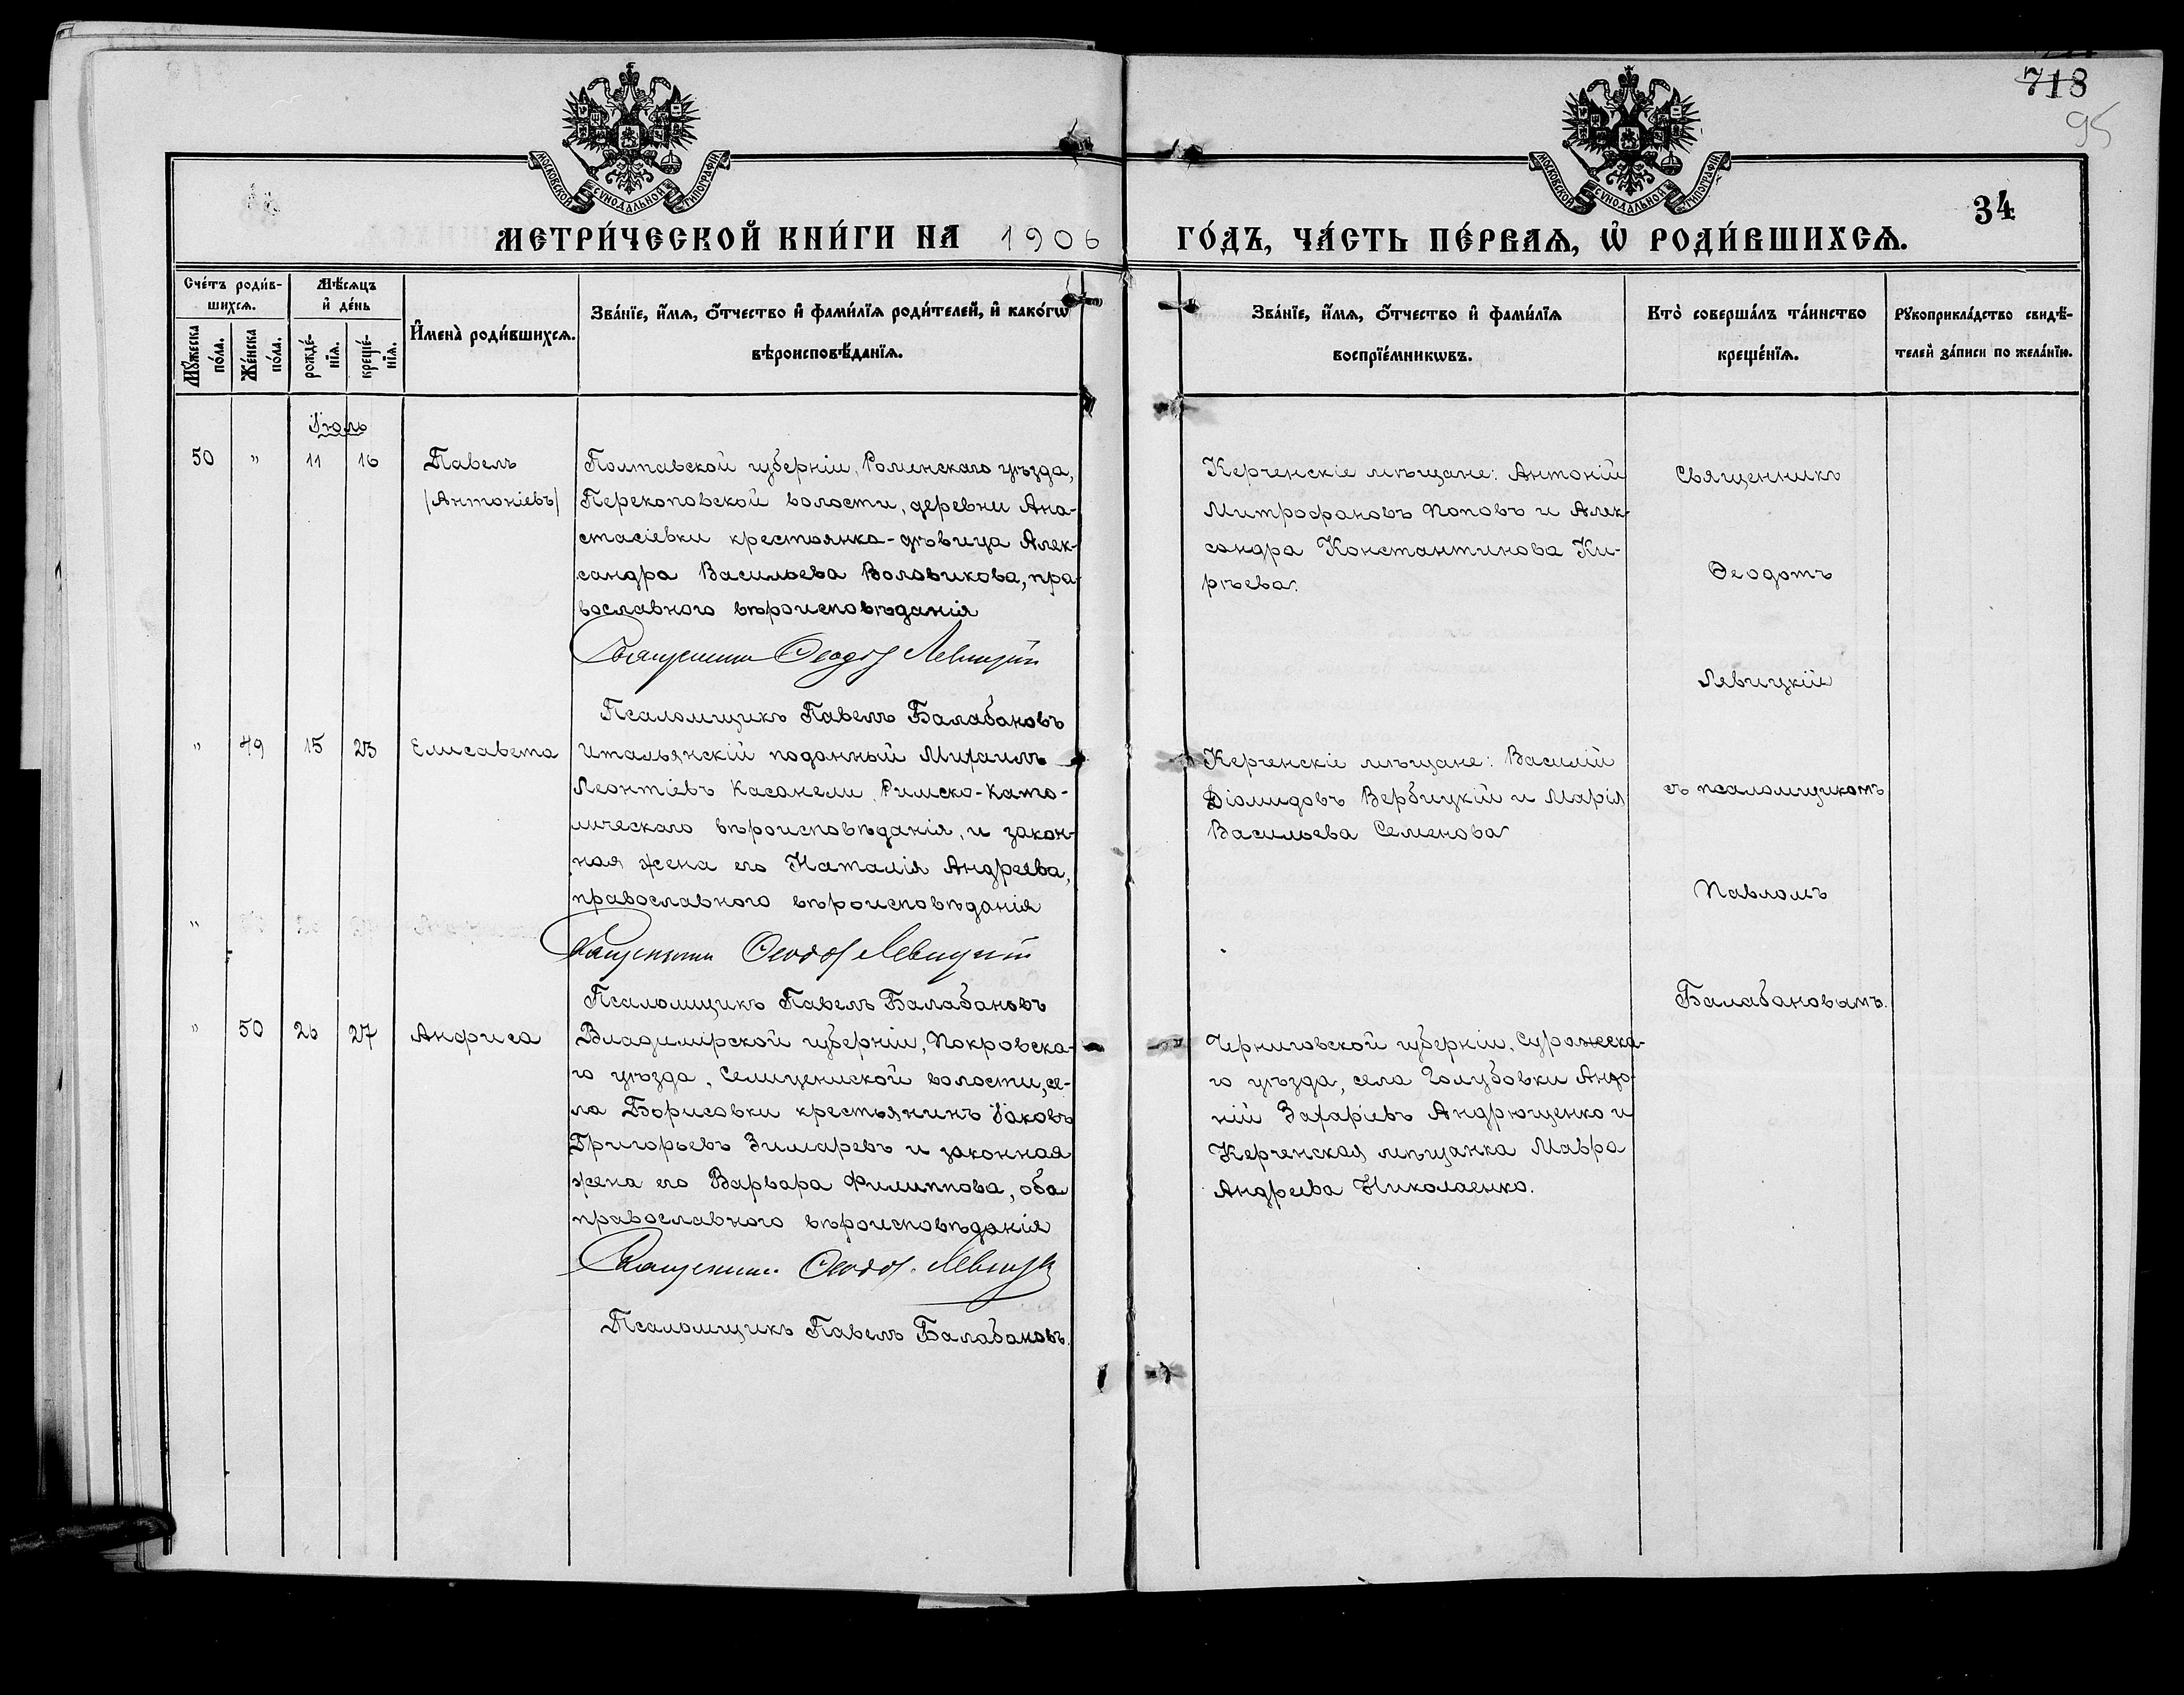 718
95
МОСКОВСКОЙ СѴНОДАЛЬНОЙ ТИПОГРАФІИ.
МОСКОВСКОЙ СѴНОДАЛЬНОЙ ТИПОГРАФІИ.
34
МЕТРИ́ЧЕСКОЙ КНИ́ГИ НА 1906 ГО́ДЪ, ЧА́СТЬ ПЕ́РВАЯ, Ѡ҆ РОДИ́ВШИХСЯ.
Сче́тъ роди́в-
шихся.
Мѣ́сяцъ
и҆ де́нь
Мꙋ́жеска по́ла.
Же́нска по́ла.
рожде́-
нїя.
креще́-
нїя.
И҆мена̀ роди́вшихся.
Зва́нїе, и҆́мя, ѻ҆́тчество и҆ фами́лїя роди́телей, и҆ како́гѡ
вѣроисповѣ́данїя.
Зва́нїе, и҆́мя, ѻ҆́тчество и҆ фами́лїя
воспрїе́мникѡвъ.
Кто̀ соверша́лъ та́инство
креще́нїя.
Рꙋкоприкла́дство свидѣ́-
телей за́писи по жела́нїю.
Іюль
50 " 11 16 Павелъ
/Антоніевъ/
Полтавской губерніи, Роменскаго уѣзда,
Перекоповской волости, деревни Ана-
стасіевки крестьянка-дѣвица Алек-
сандра Васильева Воловикова, пра-
вославного вѣроисповѣданія
Священникъ Ѳеодотъ Левицкій
Псаломщикъ Павелъ Балабановъ
Керченскіе мѣщане: Антоній
Митрофановъ Поповъ и Алек-
сандра Константинова Ки-
рѣева.
Священникъ
Ѳеодотъ
Левицкій
съ псаломщикомъ
Павломъ
Балабановымъ.
" 49 15 23 Елисавета
Итальянскій поданный Михаилъ
Леонтіевъ Касанели, Римско-Като-
лическаго вѣроисповѣданія, и закон-
ная жена его Наталія Андреева,
православного вѣроисповѣданія
Священникъ Ѳеодотъ Левицкій
Псаломщикъ Павелъ Балабановъ
Керченскіе мѣщане: Василій
Діомидовъ Вербицкій и Марія
Васильева Семенова
"
" 50 26 27 Анфиса
Владимірской губерніи, Покровска-
го уѣзда, волости, се-
ла Борисовки крестьянинъ Іаковъ
Григорьевъ Зимаревъ и законная
жена его Варвара Филиппова, оба
православного вѣроисповѣданія
Священникъ Ѳеодотъ Левицкій
Псаломщикъ Павелъ Балабановъ.
Черниговской губерніи, Суражска-
го уѣзда, села Голубовки
Захаріевъ Андрющенко и
Керченская мѣщанка Мавра
Андреева Николаенко.